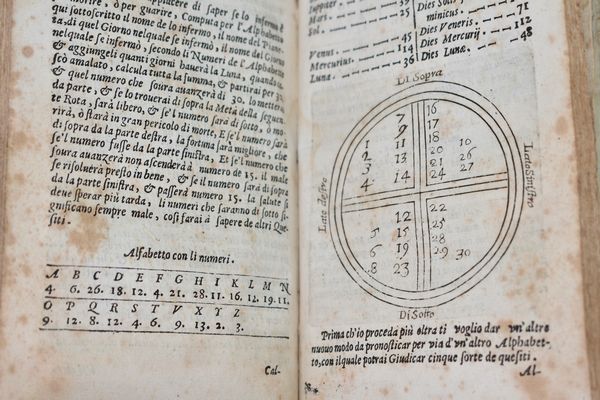 di saper se lo infermo è
morire, ò per guarire, Computa per l'Alphabetto
qui sottoscritto il nome de lo infermo, il nome del
ta, di quel Giorno nelquale se infermò, il nome del Giorno
nelquale se infermò, secondo li Numeri de l'Alphabetto
& aggiungeli quanti giorni hauerà la Luna, quando
scò amalato, calcula tutta la summa, & partirai per 30.
& quel numero che soura auanzerà di 30. lo metterai
da parte, & se lo trouerai di sopra la Metà della seguen
te Rota, sarà libero, & se'l numero sarà di sotto, ò mo-
rirà, ò starà in gran pericolo di morte, E se'l numero sarà
di sopra da la parte destra, la fortuna sarà migliore, che
se'l numero fusse da la parte sinistra, Et se'l numero che
soura auanzerà non ascenderà numero de 15. il male
se risoluerà presto in bene, & se il numero sarà di sopra
da la parte sinistra, & passerà numero 15. la salute si
deue sperar più tarda, li numeri che saranno di sotto si-
gnificano sempre male, così farai à sapere de altri Que-
siti.
Alfabetto con li numeri.
A B C D E F G H I K L M N
4. 6. 26. 18. 12. 4. 21. 28. 11. 16. 12. 19. 11.
O P Q R S T V X Y Z
9. 12. 8. 12. 4. 6. 9. 13. 2. 3.
Cal-
Iuppiter
Mars. 39
Sol. 25
Venus. 45
Mercurius. 114
Luna. 36
Dies
minicus. 71
Dies Veneris. 112
Dies Mercurij
Dies Lunæ. 48
Di Sopra
7 16
9 17
1 11 18 10
2 13 20 26
3 14 21 27
4 24
12 22
5 15 25
6 19 28
8 23 29 30
Lato destro
Lato Sinistro
Di Sotto
Prima ch'io proceda più oltra ti voglio dar vn'altro
nuouo modo da pronosticar per via d'vn'altro Alphabet-
to, con ilquale potrai Giudicar cinque sorte de quesiti.
Al-